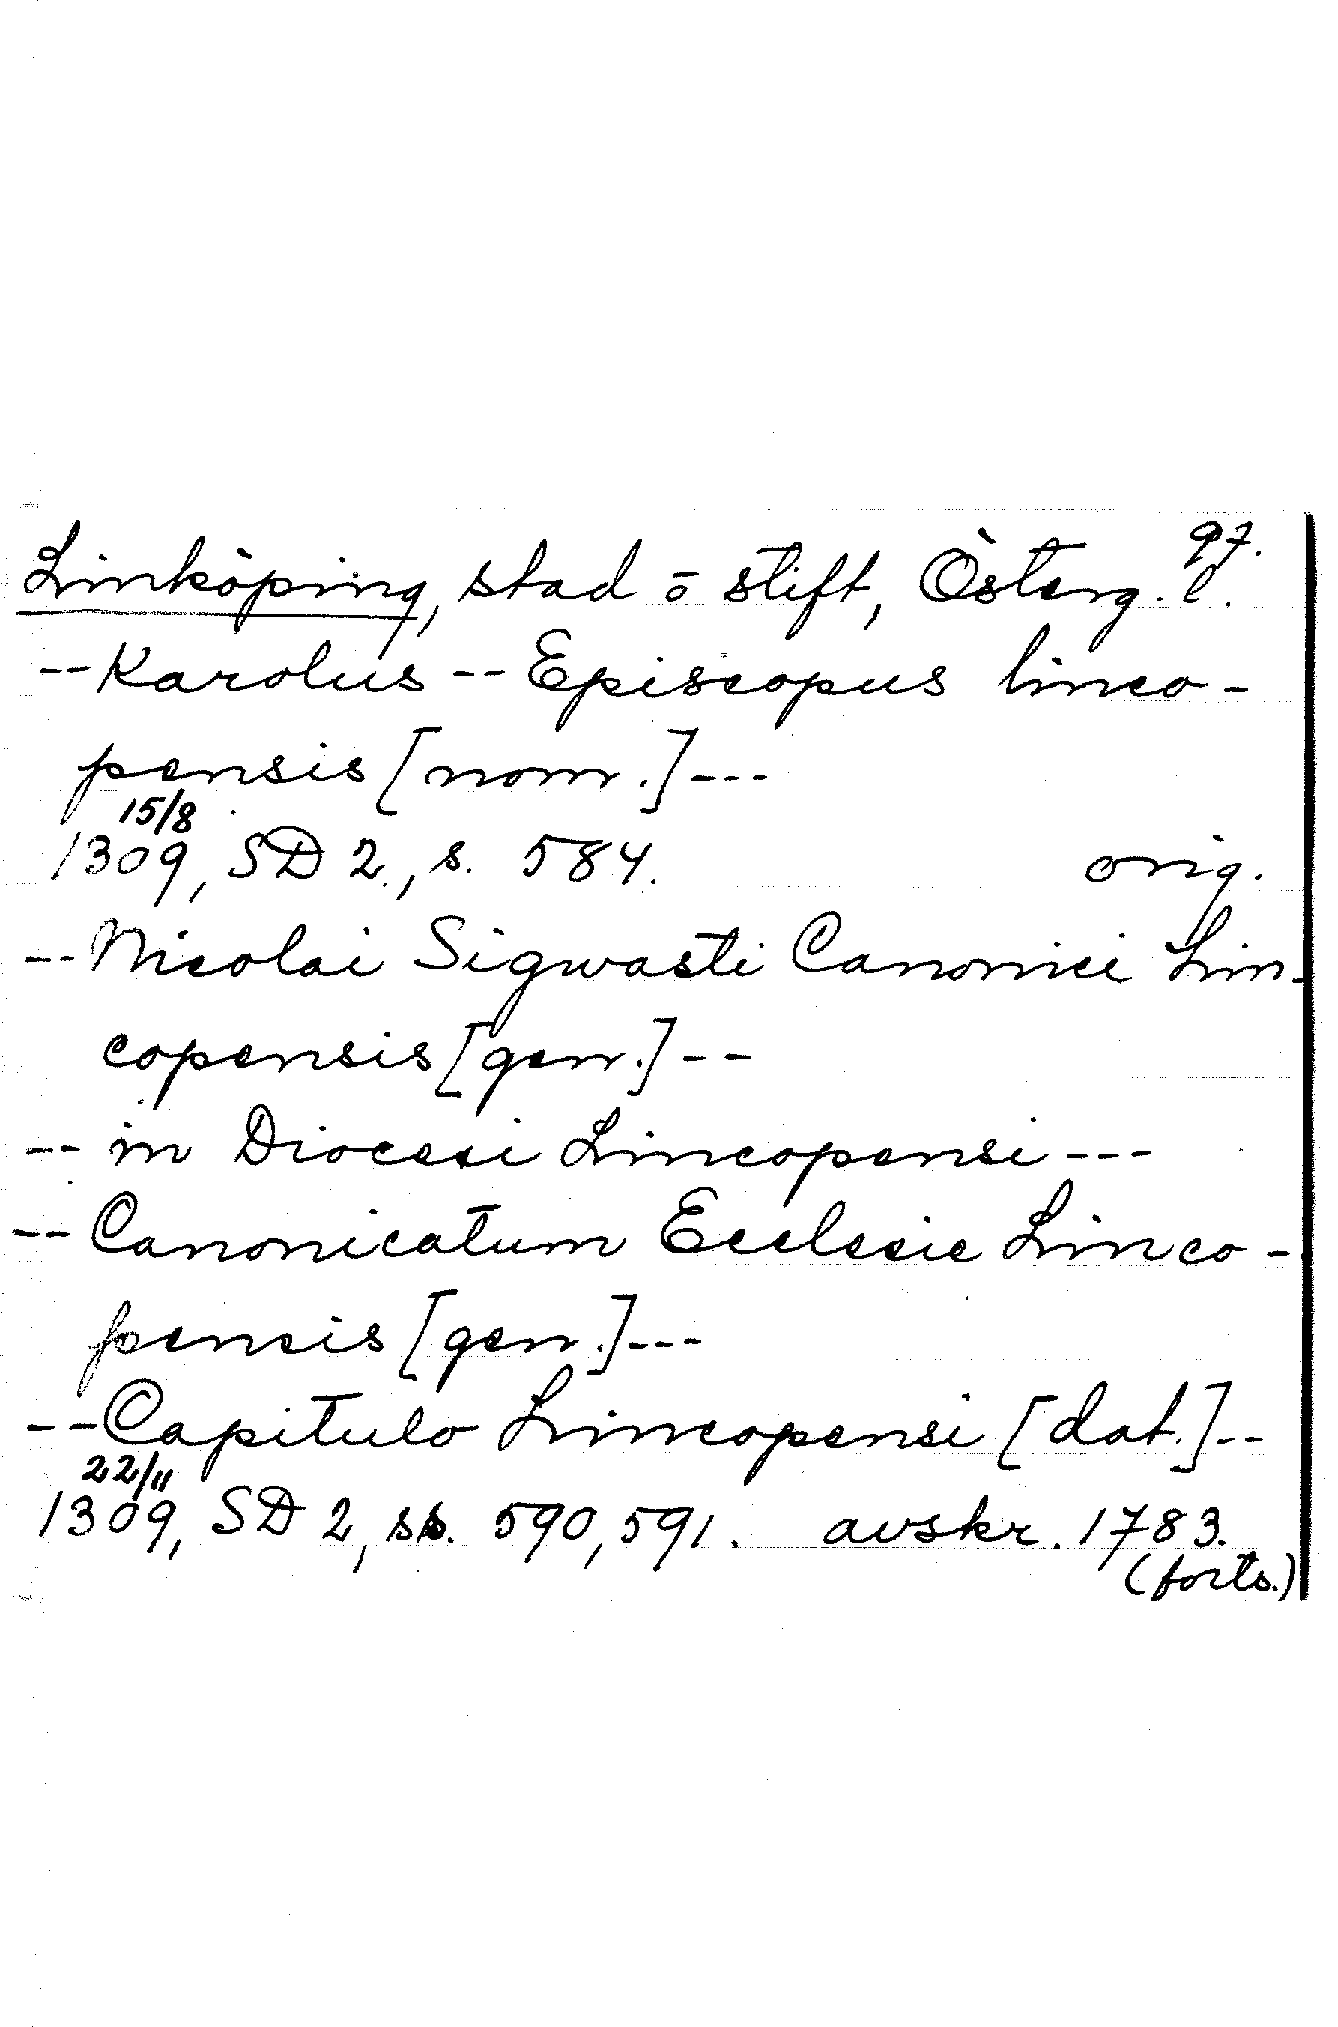 97.
Linköping, stad o stift, Österg. l.
-- Karolus -- Episcopus linco-
pensis [nom.] ---
15/8
1309, SD 2, s. 584. orig.
-- Nicolai Sigwasti Canonici Lin-
copensis [gen.] --
-- in Diocesi Lincopensi ---
-- Canonicatum Ecclesie Linco-
pensis [gen.] ---
-- Capitulo Lincopensi [dat.] --
22/11
1309, SD 2, ss. 590, 591. avskr. 1783.
(forts.)